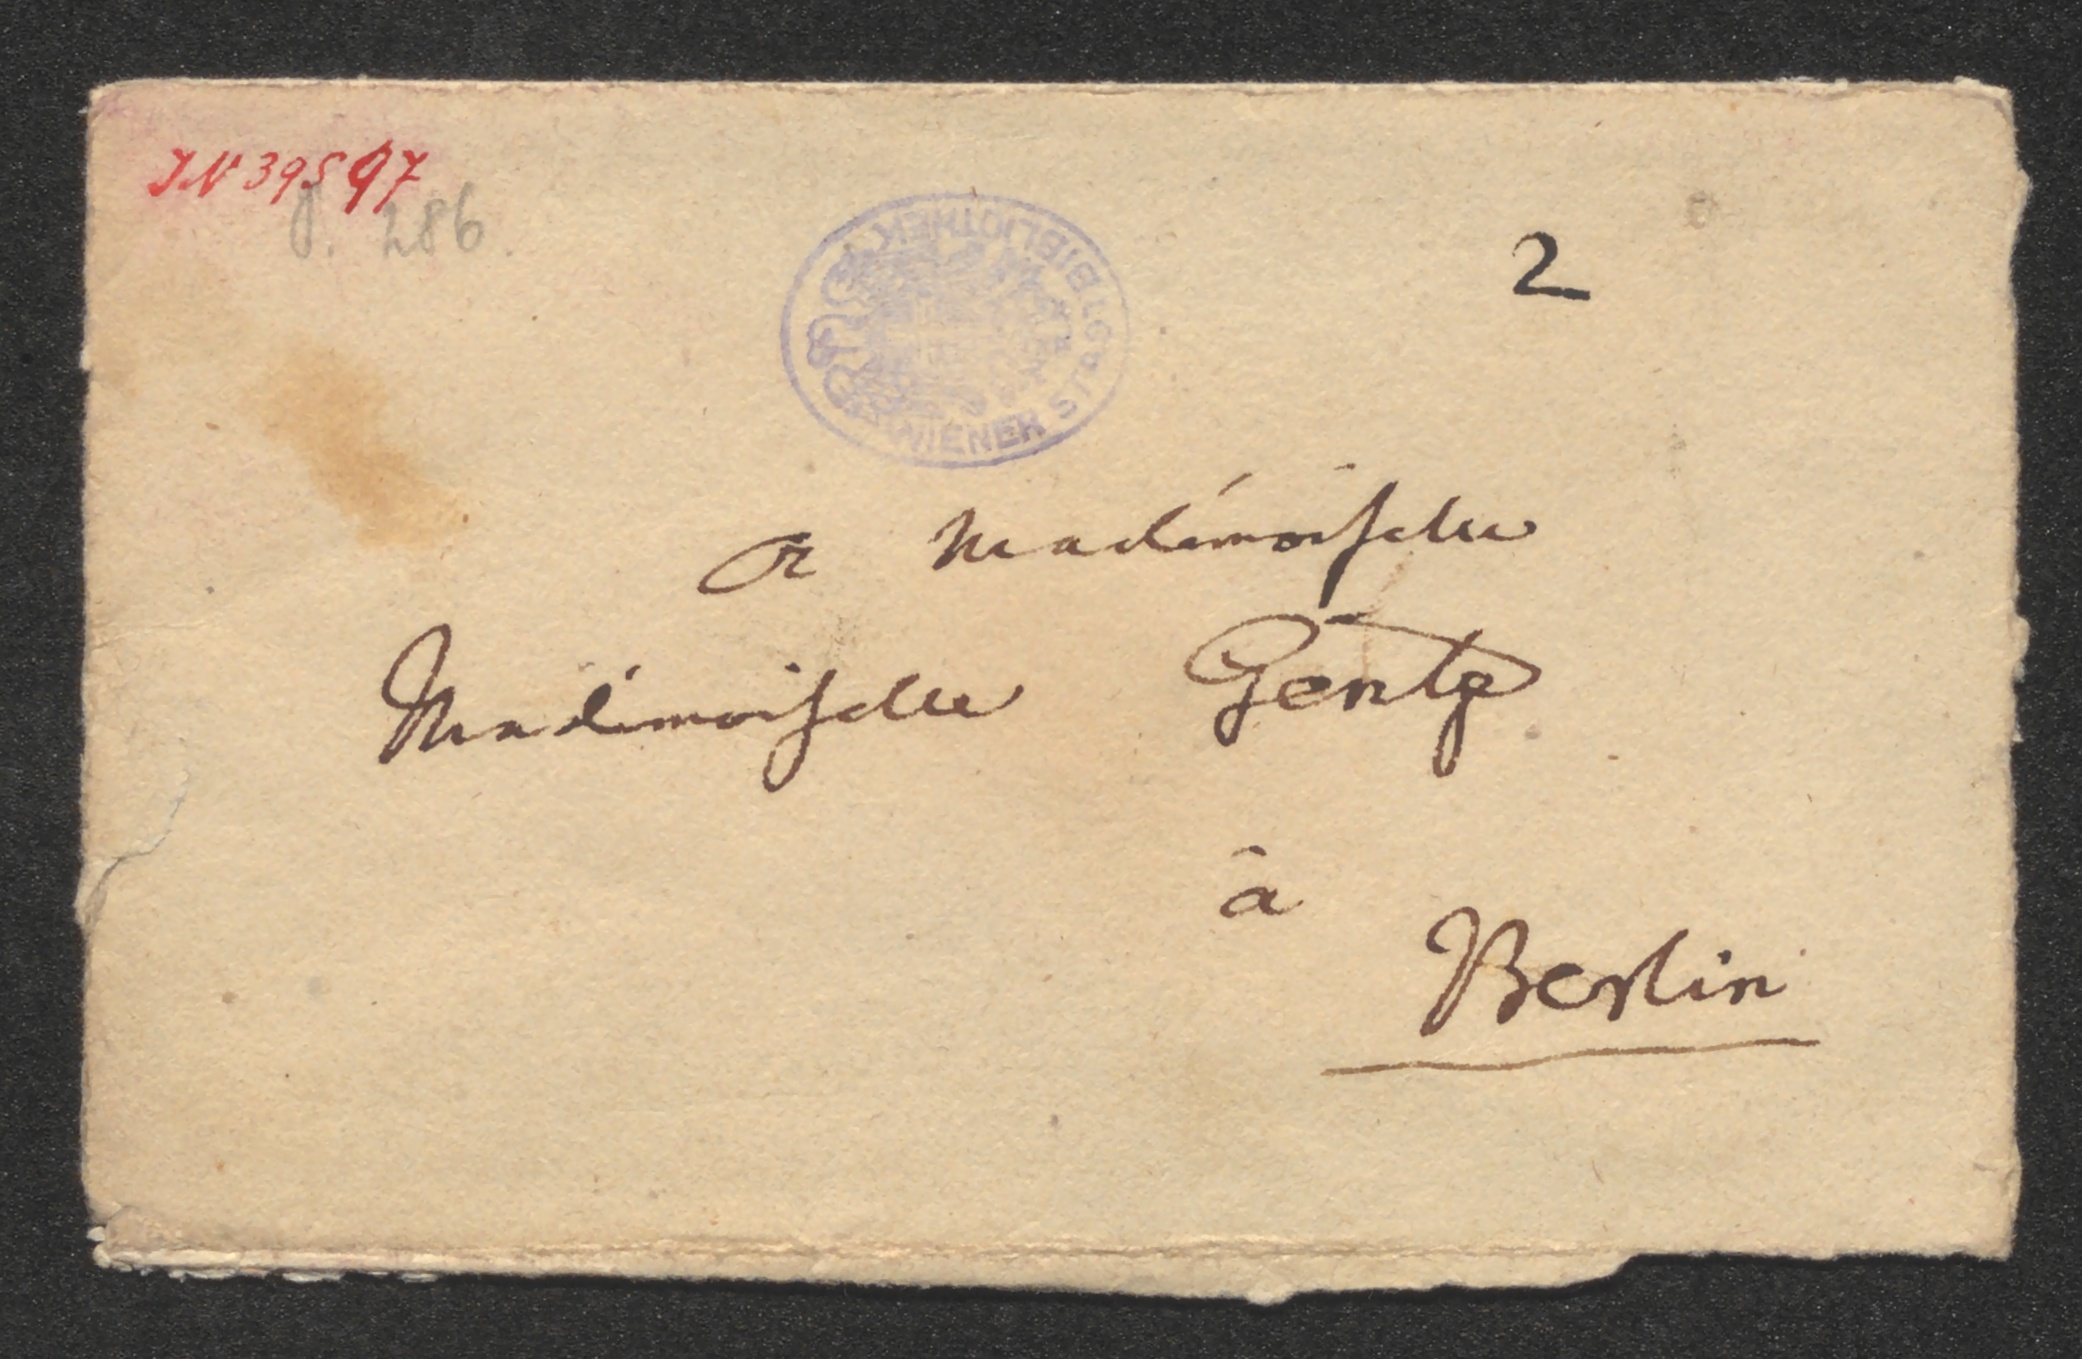 JN 39597
J. 286.
WIENER STADTBIBLIOTHEK
2
a Mademoiselle
Mademoiselle Gentz
â
Berlin